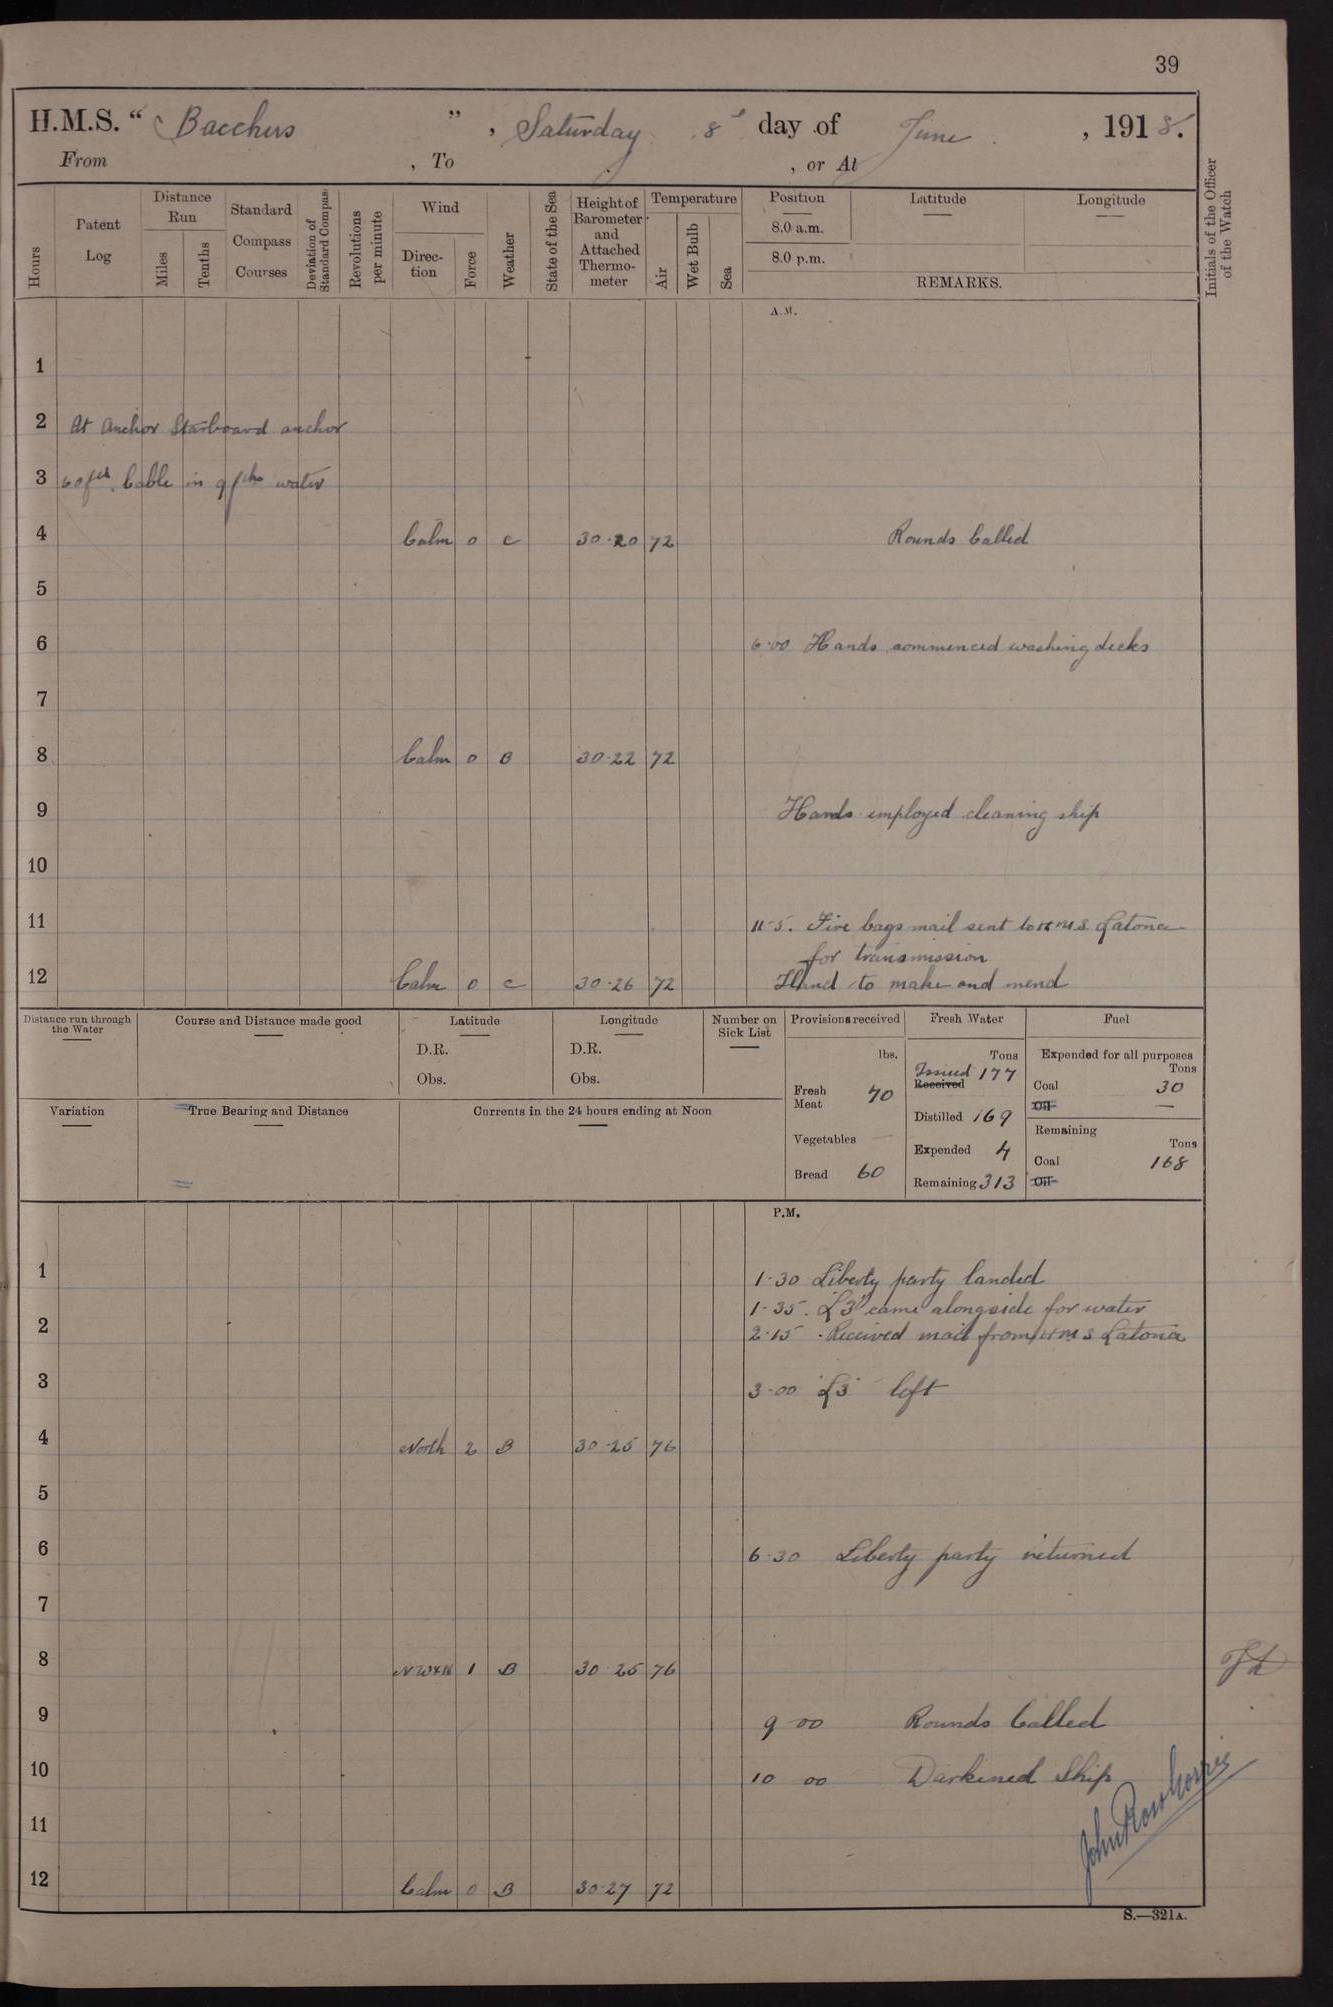 39
H.M.S. " Bacchus ", Saturday 8 day of June, 1918.
From , To , or At
Hours
Patent Log
Distance Run
Miles
Tenths
Standard Compass Courses
Deviation of Standard Compass
Revolutions per minute
Wind
Direction
Force
Weather
State of the Sea
Height of Barometer and Attached Thermometer
Temperature
Air
Wet Bulb
Sea
Position
8.0 a.m.
8.0 p.m.
Latitude
Longitude
REMARKS.
Initials of the Officer of the Watch
A.M.
1
2 At Anchor Starboard anchor
3 60 fth Cable in 9 fths water
4 Calm 0 C 30·20 72 Rounds Called
5
6 6·00 Hands commenced washing decks
7
8 Calm 0 B 30·22 72
9 Hands employed cleaning ship
10
11 11-5. Five bags mail sent to H.M.S. Latona
for transmission
12 Calm 0 C 30·26 72 Hand to make and mend
Distance run through the Water
Course and Distance made good
Latitude
D.R.
Obs.
Longitude
D.R.
Obs.
Number on Sick List
Provisions received
lbs.
Fresh Meat 70
Vegetables
Bread 60
Fresh Water
Tons
Issued 177
Received
Distilled 169
Expended 4
Remaining 313
Fuel
Expended for all purposes
Tons
Coal 30
Oil —
Remaining
Tons
Coal 168
Oil
Variation
True Bearing and Distance
Currents in the 24 hours ending at Noon
P.M.
1 1·30 Liberty party landed
1-35. "L3" came alongside for water
2 2·15 . Received mail from H M S Latona
3 3·00 "L3" left
4 North 2 B 30·25 76
5
6 6·30 Liberty party returned
7
8 NWxN 1 B 30 25 76
9 9 00 Rounds Called
10 10 00 Darkened Ship
11
12 Calm 0 B 30·27 72
S.—321A.